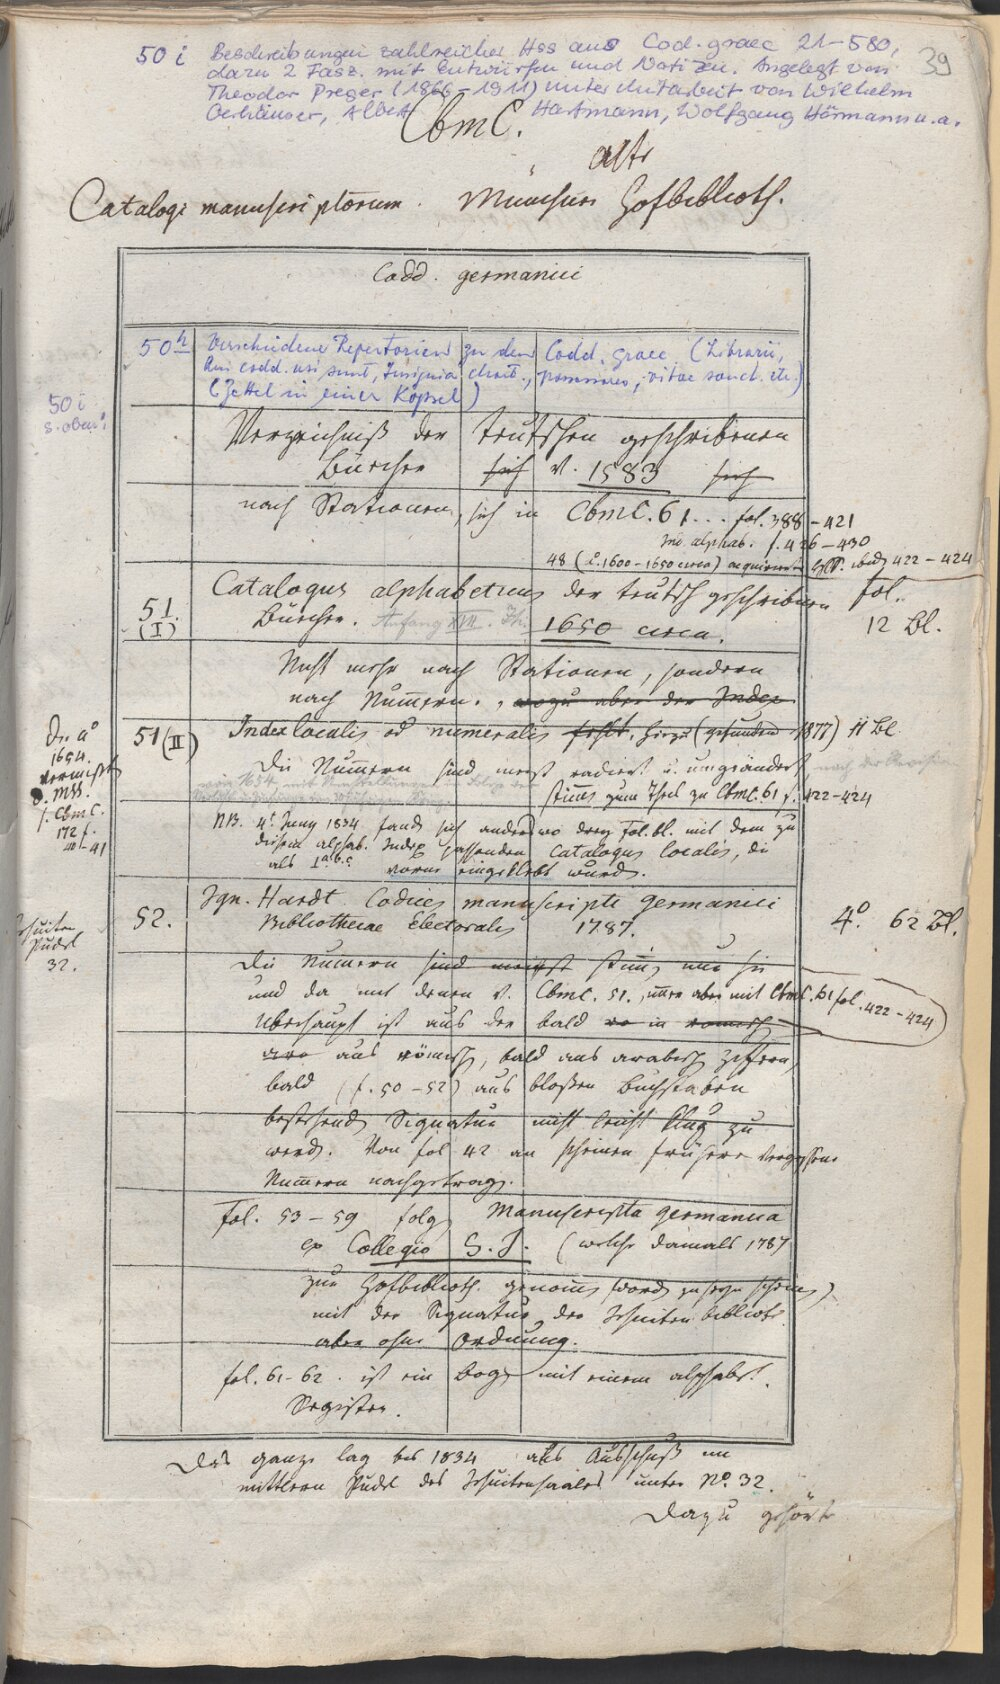 50 i Beschreibungen zahlreicher Hss aus Cod. graec 21–580,
dazu 2 Fasz. mit Entwürfen und Notizen. Angelegt von
Theodor Preger (1866–1911) unter Mitarbeit von Wilhelm
Gerhäuser, Albert Hartmann, Wolfgang Hörmann u.a.
39
CbmC.
alte
Catalogi manuscriptorum. Münchner Hofbiblioth.
Codd. germanici
50h Verschiedene Repertorien zu den Codd. graec. (Librarii,
qui codd. usi sunt, Insignia chart., vitae sanct. etc.)
(Zettel in einer Kapsel)
50 i
s. oben!
Verzeichniß der teutschen geschribenen
Bücher sich v. 1583 sich
nach Stationen, sich in CbmC. 61... fol. 388–421
Ind. alphab. f. 426–430
48 (c. 1600–1650 circa) ibid. 422–424
51.
(I)
Catalogus alphabeticus der teutsch geschribnen fol.
Bücher. Anfang XVII. Jh. 1650 circa. 12 Bl.
Nicht mehr nach Stationen, sondern
nach Numern., wozu aber der Index
51 (II) Index localis od numeralis fehlt. hiezu (gefunden 1877) 11 Bl
Die Numern sind meist radiert u. umgeändert nach der Revision
von 1654
stimen zum Theil zu CbmC. 61 f. 422–424
De aº
1654.
vermißte
d. MSS.
f. CbmC.
172 f.
40–41
NB. 4t Juny 1834 fand sich anderswo drey Fol. bl. mit dem zu
diesem alphab. Index passenden Catalogus localis, die
als 1a.b.c vorne eingeklebt wurde.
52. Ign. Hardt Codices manuscripti Germanici
Bibliothecae Electoralis 1787. 4º. 62 Bl.
Jesuiten
Pudel
32.
Die Numern sind meist stimen nur hie
und da mit denen v. CbmC. 51., immer aber mit CbmC. 61 fol. 422–424
Überhaupt ist aus der bald in römisch
ara aus römisch, bald aus arabisch Ziffern,
bald (f. 50–52) aus bloßen Buchstaben
bestehend Signatur nicht leicht klug zu
werd. Von fol 42 an scheinen früher vergessene
Numern nachgetrag.
Fol. 53–59 folg Manuscripta germanica
ex Collegio S. J. (welche damals 1787
zur Hofbiblioth. genomen word zu seyn scheinen)
mit der Signatur der Jesuiten biblioth.
aber ohne Ordnung.
fol. 61–62. ist ein Bog mit einem alphabet.
Register.
Das ganze lag bis 1834 als Ausschuß im
mittlern Pudel des Jesuitensaales unter Nº. 32.
Dazu gehört